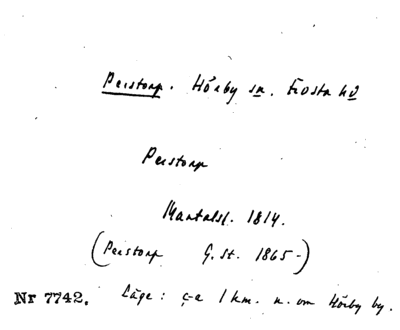 Perstorp. Hörby sn. Frosta hd
Perstorp
Mantalsl. 1814.
(Perstorp G. st. 1865-)
Nr 7742. Läge: c-a 1 km. n. om Hörby by.